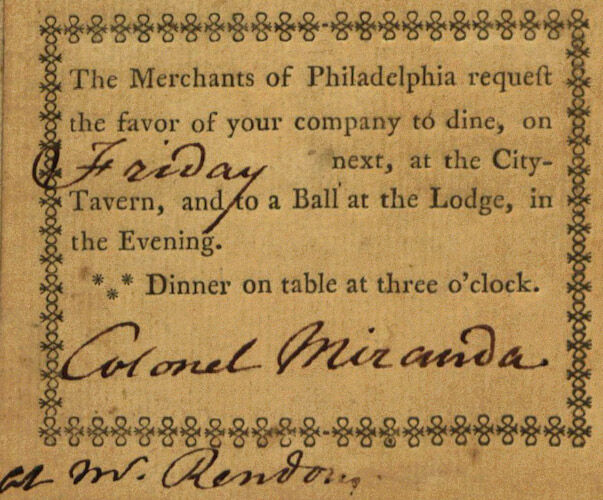 The Merchants of Philadelphia requeſt
the favor of your company to dine, on
Friday next, at the City-
Tavern, and to a Ball at the Lodge, in
the Evening.
⁂ Dinner on table at three o'clock.
Colonel Miranda
at Mr. Rendon